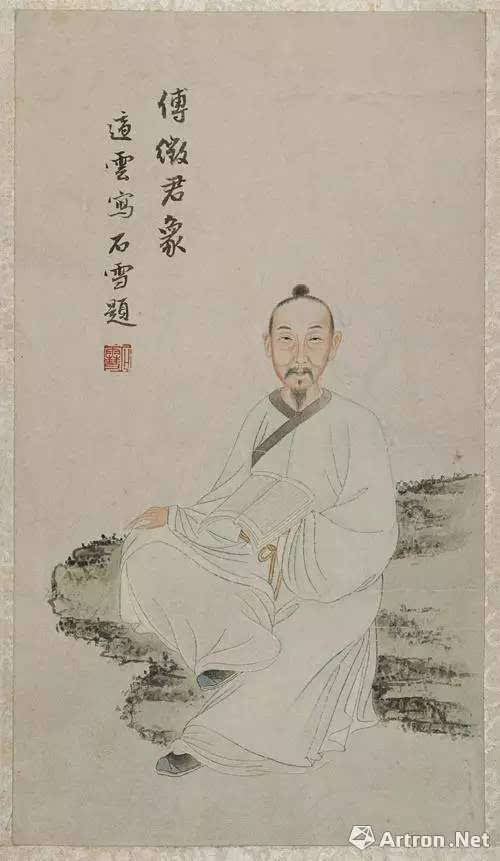 傅徵君象
適雲寫石雪題
Artron.Net